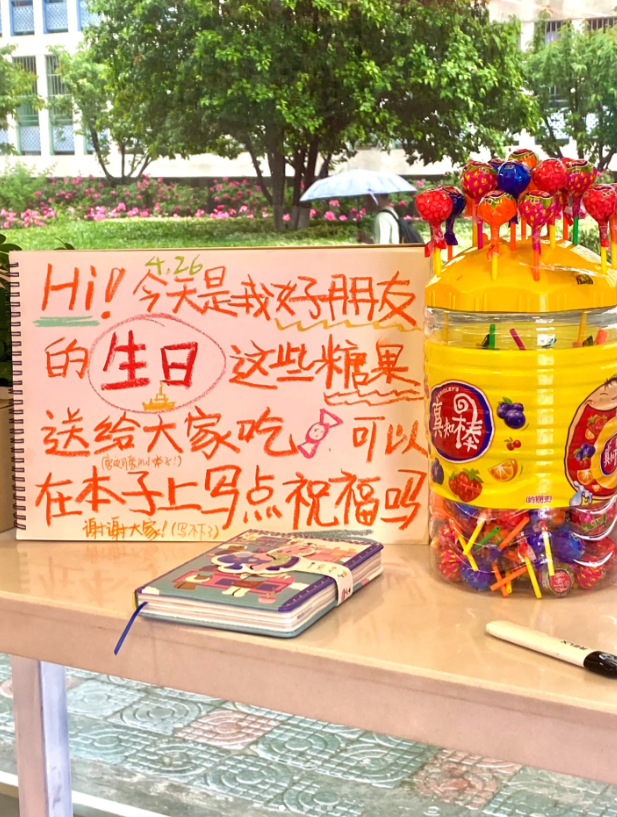 4.26
Hi! 今天是我好朋友
的 生日 这些糖果
送给大家吃 可以
在本子上写点祝福吗
谢谢大家!(写不下了)
真知棒